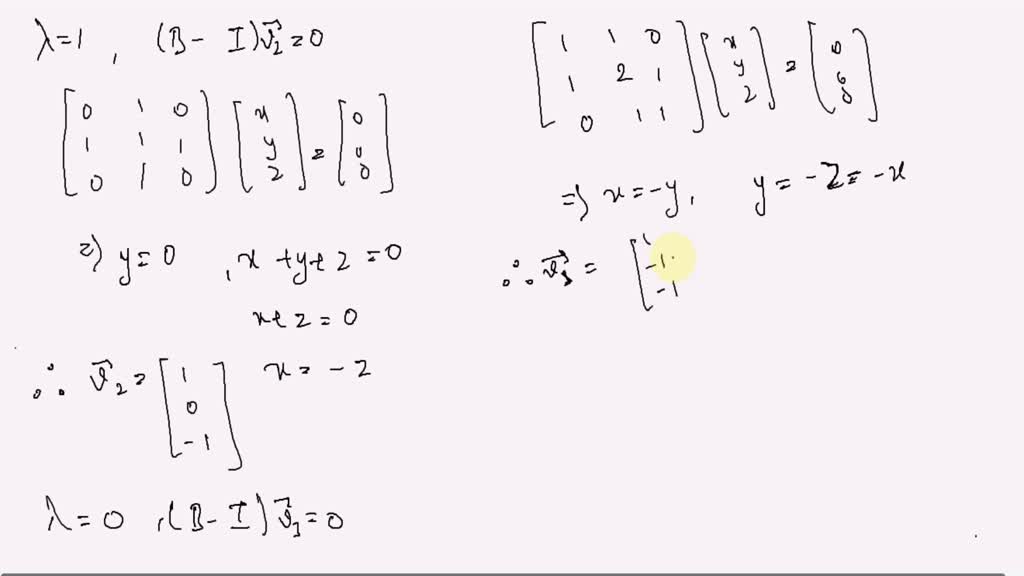 λ=1 , (B- I)v⃗₂=0
[0 1 0
1 1 1
0 1 0] [x
y
z] = [0
0
0]
⇒) y=0 , x+y+z=0
x+z=0
∴ v⃗₂= [1
0
-1] x= -z
λ=0 ,(B-I)v⃗₃=0
[1 1 0
1 2 1
0 1 1] [x
y
z] = [0
0
0]
=) x=-y, y=-z=-x
∴ v⃗₃= [1
-1
-1